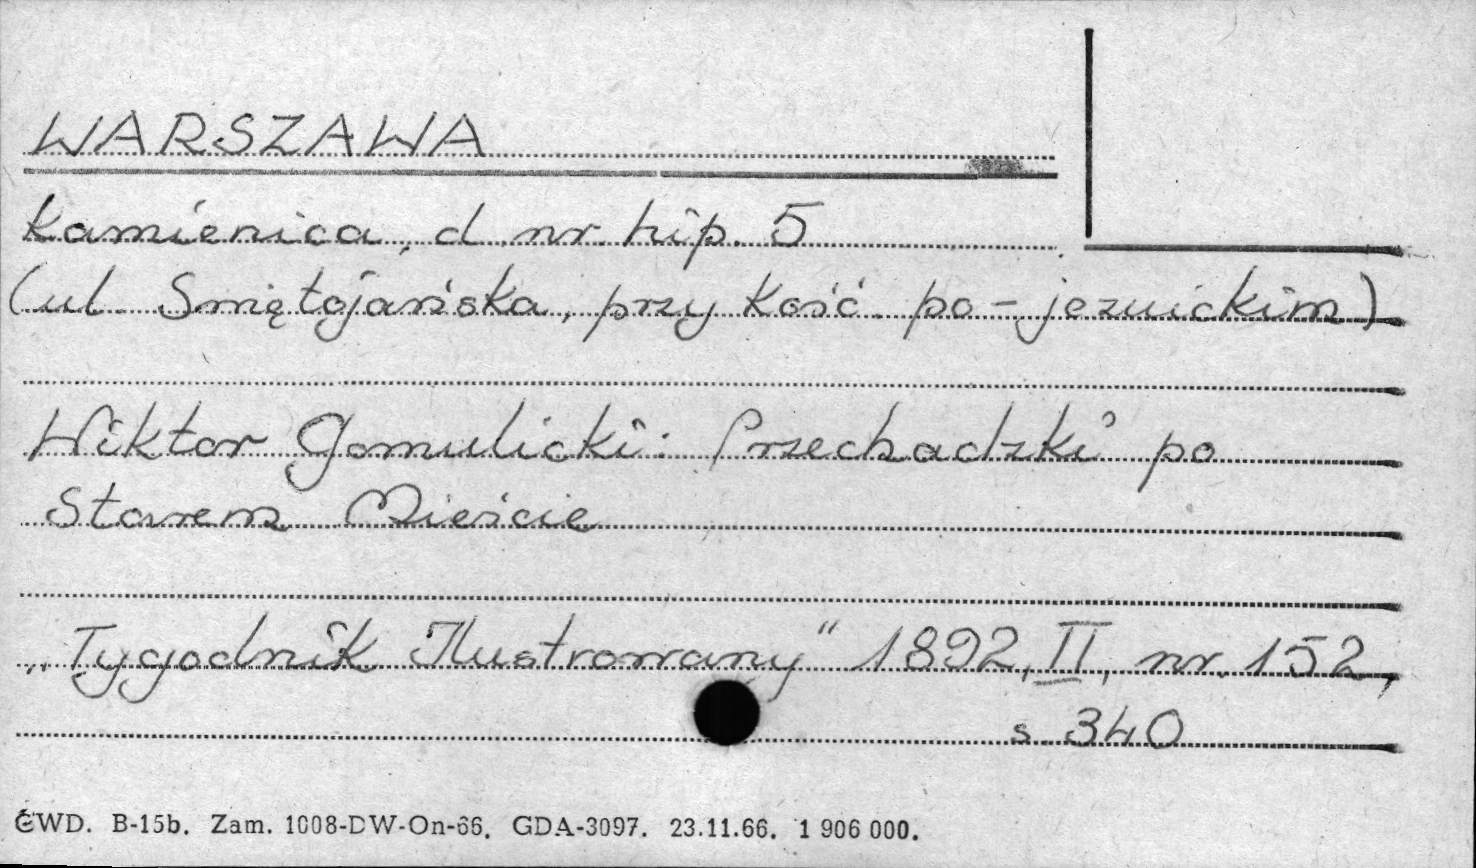 WARSZAWA
Kamienica, d. nr hip. 5
(ul. Świętojańska, przy Kość. po-jezuickim)
Wiktor Gomulicki: Przechadzki po
Starem Mieście
„Tygodnik Ilustrowany" 1892, II, nr. 152,
s. 340
ĆWD. B-15b. Zam. 1008-DW-On-66. GDA-3097. 23.11.66. 1 906 000.